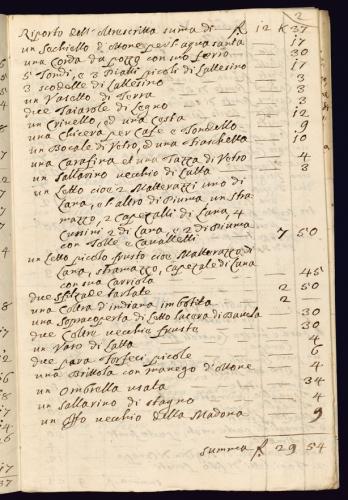 2
Riporto dell'oltrescritta suma di f 12 K 37
un Sechiello d'ottone per l'aqua santa 17
una Corda da pozzo con suo ferro 30
5 Tondi, e 3 Piatti picoli di Lattesino 17
3 scodelle di Lattesino 3
un Vasetto di Terra 3
due Taiarole di Legno 3
un Crivello, ed una Cesta 12
una Chicera per Cafe e Tondello 9
un Bocale di Vetro, ed una Fraschetta 10
una Carafina et una Tazza di Vetro 4
un Sallarino vechio di Latta 3
un Letto cioè 2 Matterazzi uno di
Lana, e l'altro di Piuma un stra-
mazzo, 2 Capezalli di Lana, 4
Cussini 2 di Lana, e 2 di Piuma
con Tolle e Cavalletti 7 50
un Letto picolo frusto cioè Matterazzo di
Lana, stramazzo, Capezale di Lana
con sua Carriola 45
due tarlate 2 50
una Coltra d'indiana imbotita 2
una Sopracoperta di Letto lacera di 30
due Coltre vechie fruste 30
un Vaso di Latta 4
due para Forfeci picole 6
una Brittola con manego d'ottone 4
un Ombrella usata 34
un Sallarino di stagno 4
un vechio della Madona 9
summa f 29 54